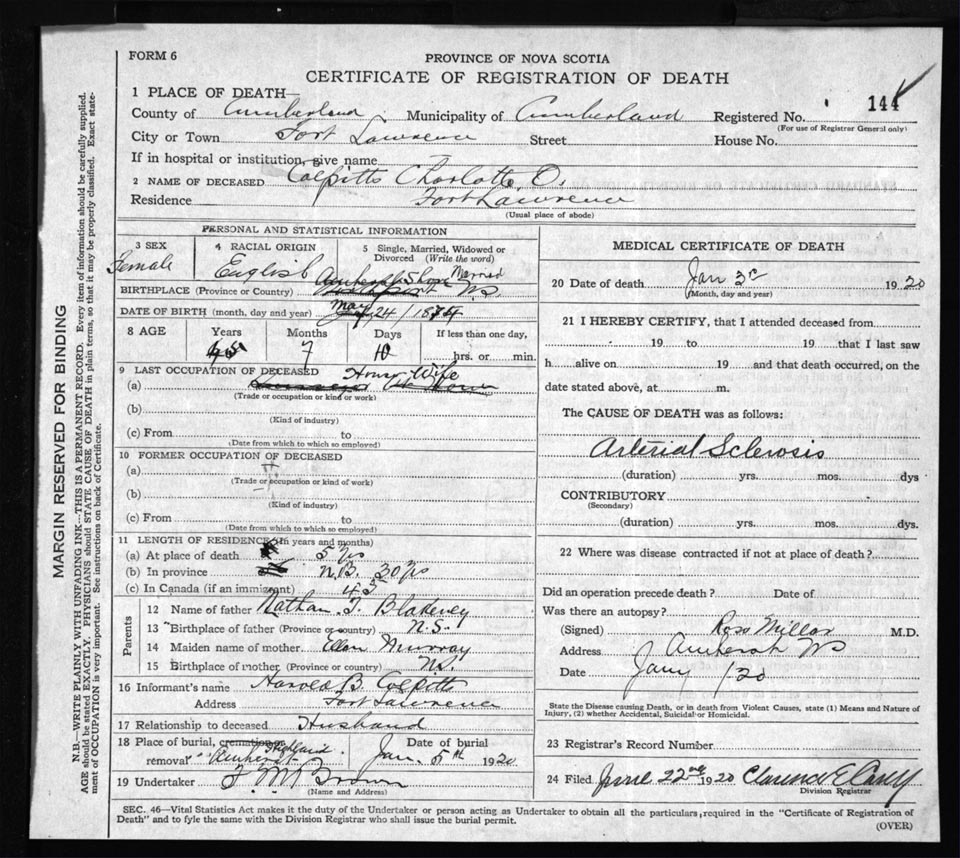 FORM 6
PROVINCE OF NOVA SCOTIA
CERTIFICATE OF REGISTRATION OF DEATH
144
1 PLACE OF DEATH—
County of Cumberland Municipality of Cumberland Registered No.
(For use of Registrar General only)
City or Town Fort Lawrence Street House No.
If in hospital or institution, give name
2 NAME OF DECEASED Colpitts Charlotte O.
Residence Fort Lawrence
(Usual place of abode)
PERSONAL AND STATISTICAL INFORMATION
3 SEX 4 RACIAL ORIGIN 5 Single, Married, Widowed or Divorced (Write the word)
Female English Married
BIRTHPLACE (Province or Country) Amherst Shore N.S.
DATE OF BIRTH (month, day and year) May 24/1874
8 AGE Years Months Days If less than one day,
45 7 10 hrs. or min.
9 LAST OCCUPATION OF DECEASED House Wife
(a)
(Trade or occupation or kind or work)
(b)
(Kind of industry)
(c) From to
(Date from which to which so employed)
10 FORMER OCCUPATION OF DECEASED
(a)
(Trade or occupation or kind of work)
(b)
(Kind of industry)
(c) From to
(Date from which to which so employed)
11 LENGTH OF RESIDENCE (In years and months)
(a) At place of death 5 yrs
(b) In province N.B. 30 yrs
(c) In Canada (if an immigrant) 45
Parents
12 Name of father Nathan. T. Blakeney
13 Birthplace of father (Province or country) N.S.
14 Maiden name of mother Ellen Murray
15 Birthplace of mother (Province or country) N.S.
16 Informant's name Harold B. Colpitts
Address Fort Lawrence
17 Relationship to deceased Husband
18 Place of burial, cremation or removal Amherst Highland Jan. 5th 1920
Date of burial
19 Undertaker F. M. Brown
(Name and Address)
MEDICAL CERTIFICATE OF DEATH
20 Date of death Jan 3rd 1920
(Month, day and year)
21 I HEREBY CERTIFY, that I attended deceased from
19 to 19 that I last saw
h alive on 19 and that death occurred, on the
date stated above, at m.
The CAUSE OF DEATH was as follows:
Arterial Sclerosis
(duration) yrs. mos. dys
CONTRIBUTORY
(Secondary)
(duration) yrs. mos. dys.
22 Where was disease contracted if not at place of death?
Did an operation precede death? Date of
Was there an autopsy?
(Signed) Ross Millar M.D.
Address Amherst NS
Date Jany /20
State the Disease causing Death, or in death from Violent Causes, state (1) Means and Nature of
Injury, (2) whether Accidental, Suicidal or Homicidal.
23 Registrar's Record Number
24 Filed June 22nd 1920 Clarence E Casey
Division Registrar
SEC. 46—Vital Statistics Act makes it the duty of the Undertaker or person acting as Undertaker to obtain all the particulars required in the "Certificate of Registration of
Death" and to fyle the same with the Division Registrar who shall issue the burial permit.
(OVER)
MARGIN RESERVED FOR BINDING
N.B.—WRITE PLAINLY WITH UNFADING INK—THIS IS A PERMANENT RECORD. Every item of information should be carefully supplied.
AGE should be stated EXACTLY. PHYSICIANS should STATE CAUSE OF DEATH in plain terms, so that it may be properly classified. Exact state-
ment of OCCUPATION is very important. See instructions on back of Certificate.